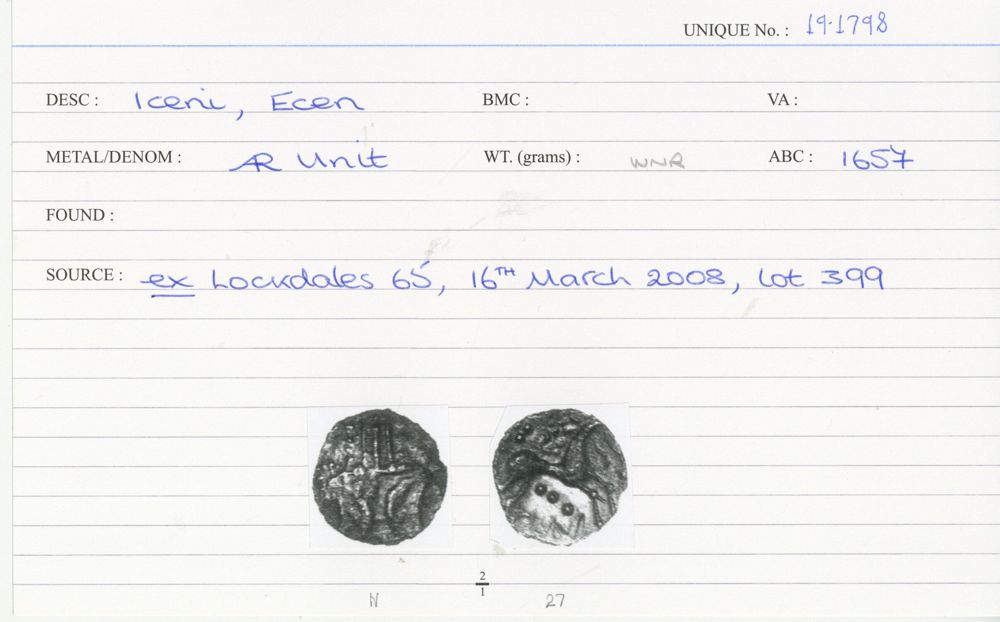 UNIQUE No. : 19.1798
DESC : Iceni, Ecen BMC : VA :
METAL/DENOM : AR Unit WT. (grams) : WNR ABC : 1657
FOUND :
SOURCE : ex Lockdales 65, 16TH March 2008, Lot 399
2
1
N 27